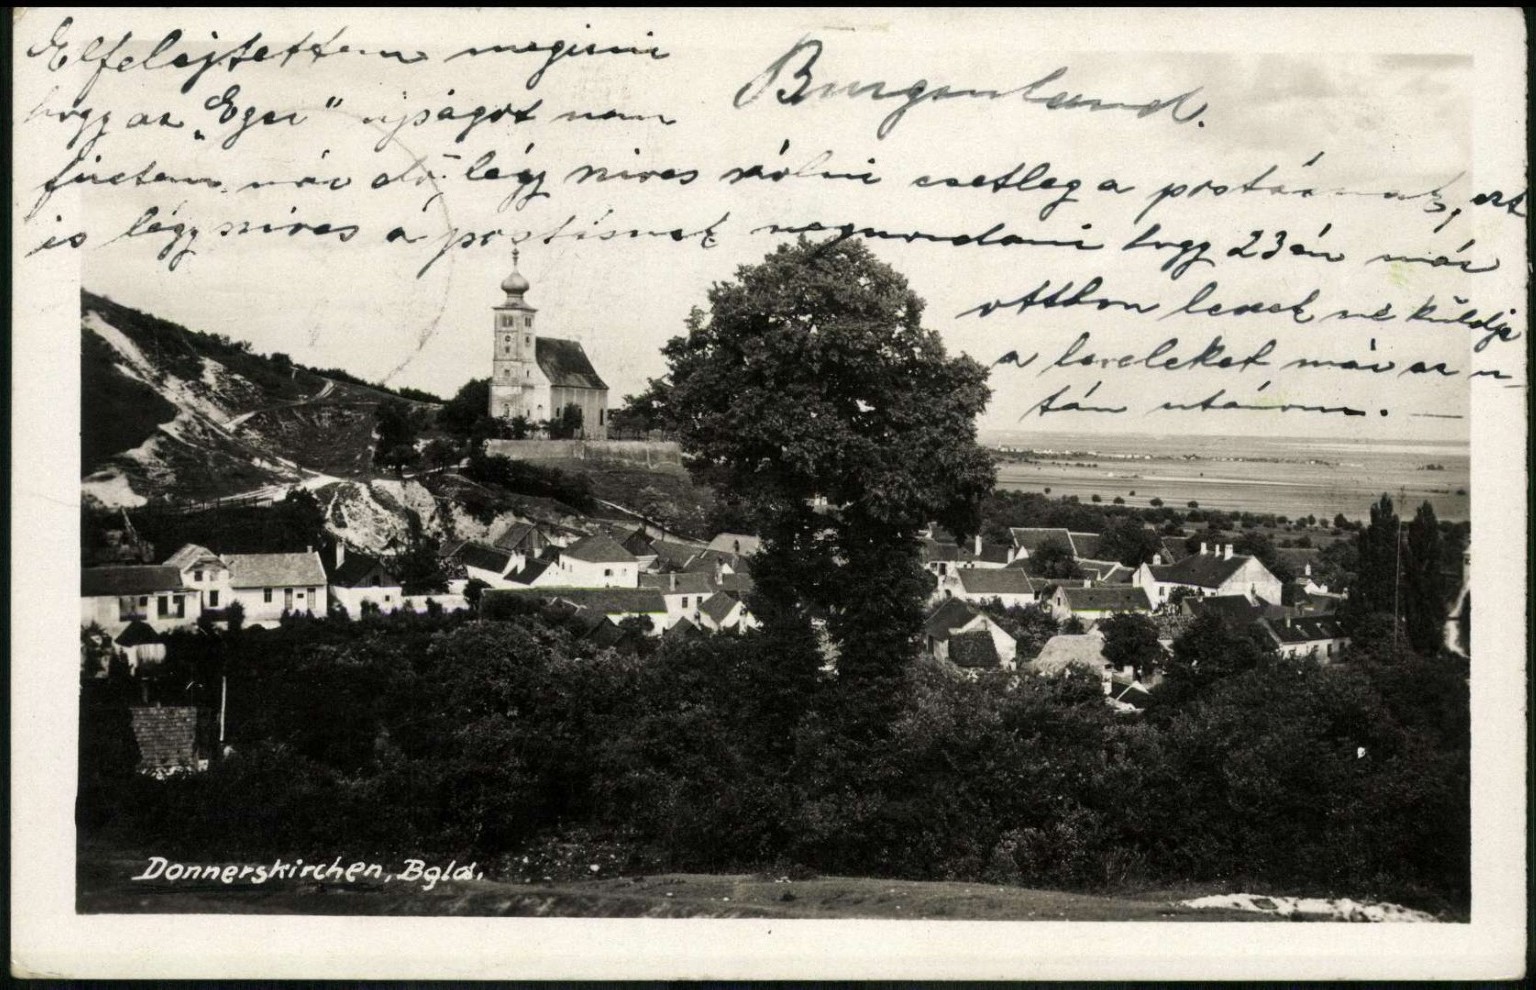 Elfelejtettem megirni
Burgenland.
hogy az „Egri" ujságot nem
fizetem már elő, légy szives szólni esetleg a postásnak, ezt
is légy szives a postásnak megmondani hogy 23án már
otthon leszek ne küldje
a leveleket már az u-
tán utánam. —
Donnerskirchen, Bgld.